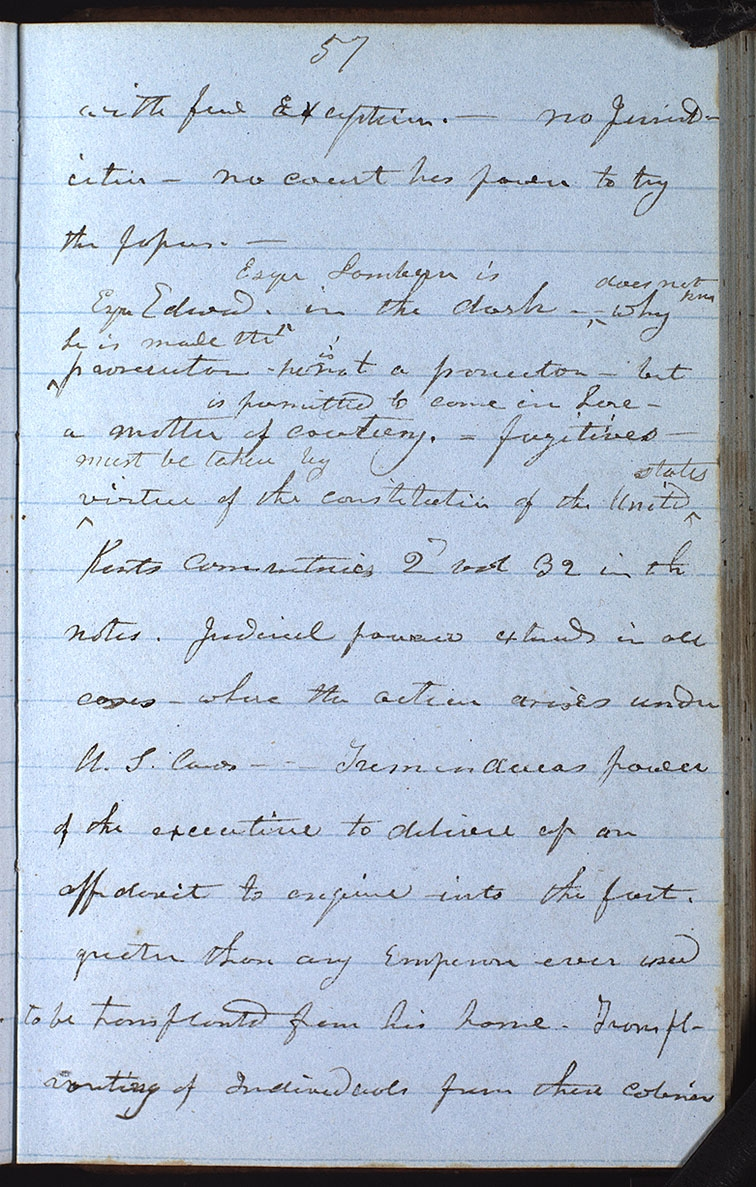 57
with few Exception. — no Jurisd-
iction — no court has power to try
the papers. —
Esqr Lamborn is does not know
Esqr Edwd. in the dark - - why
he is made the
prosecutor - he is not a prosecutor - but
is permitted to come in here -
a matter of courtesy. = fugitives -
must be taken by states
virtue of the constitution of the United
Kents commentaries 2d vol 32 in the
notes. Judicial power extends in all
cases - where the action arises under
U. S. Laws - - Tremendeous power
of the executive to deliver up on
affidavit to enquire into the fact.
greater than any Emperor ever used
to be transplanted from his home - Transpl-
anting of Individuals from there